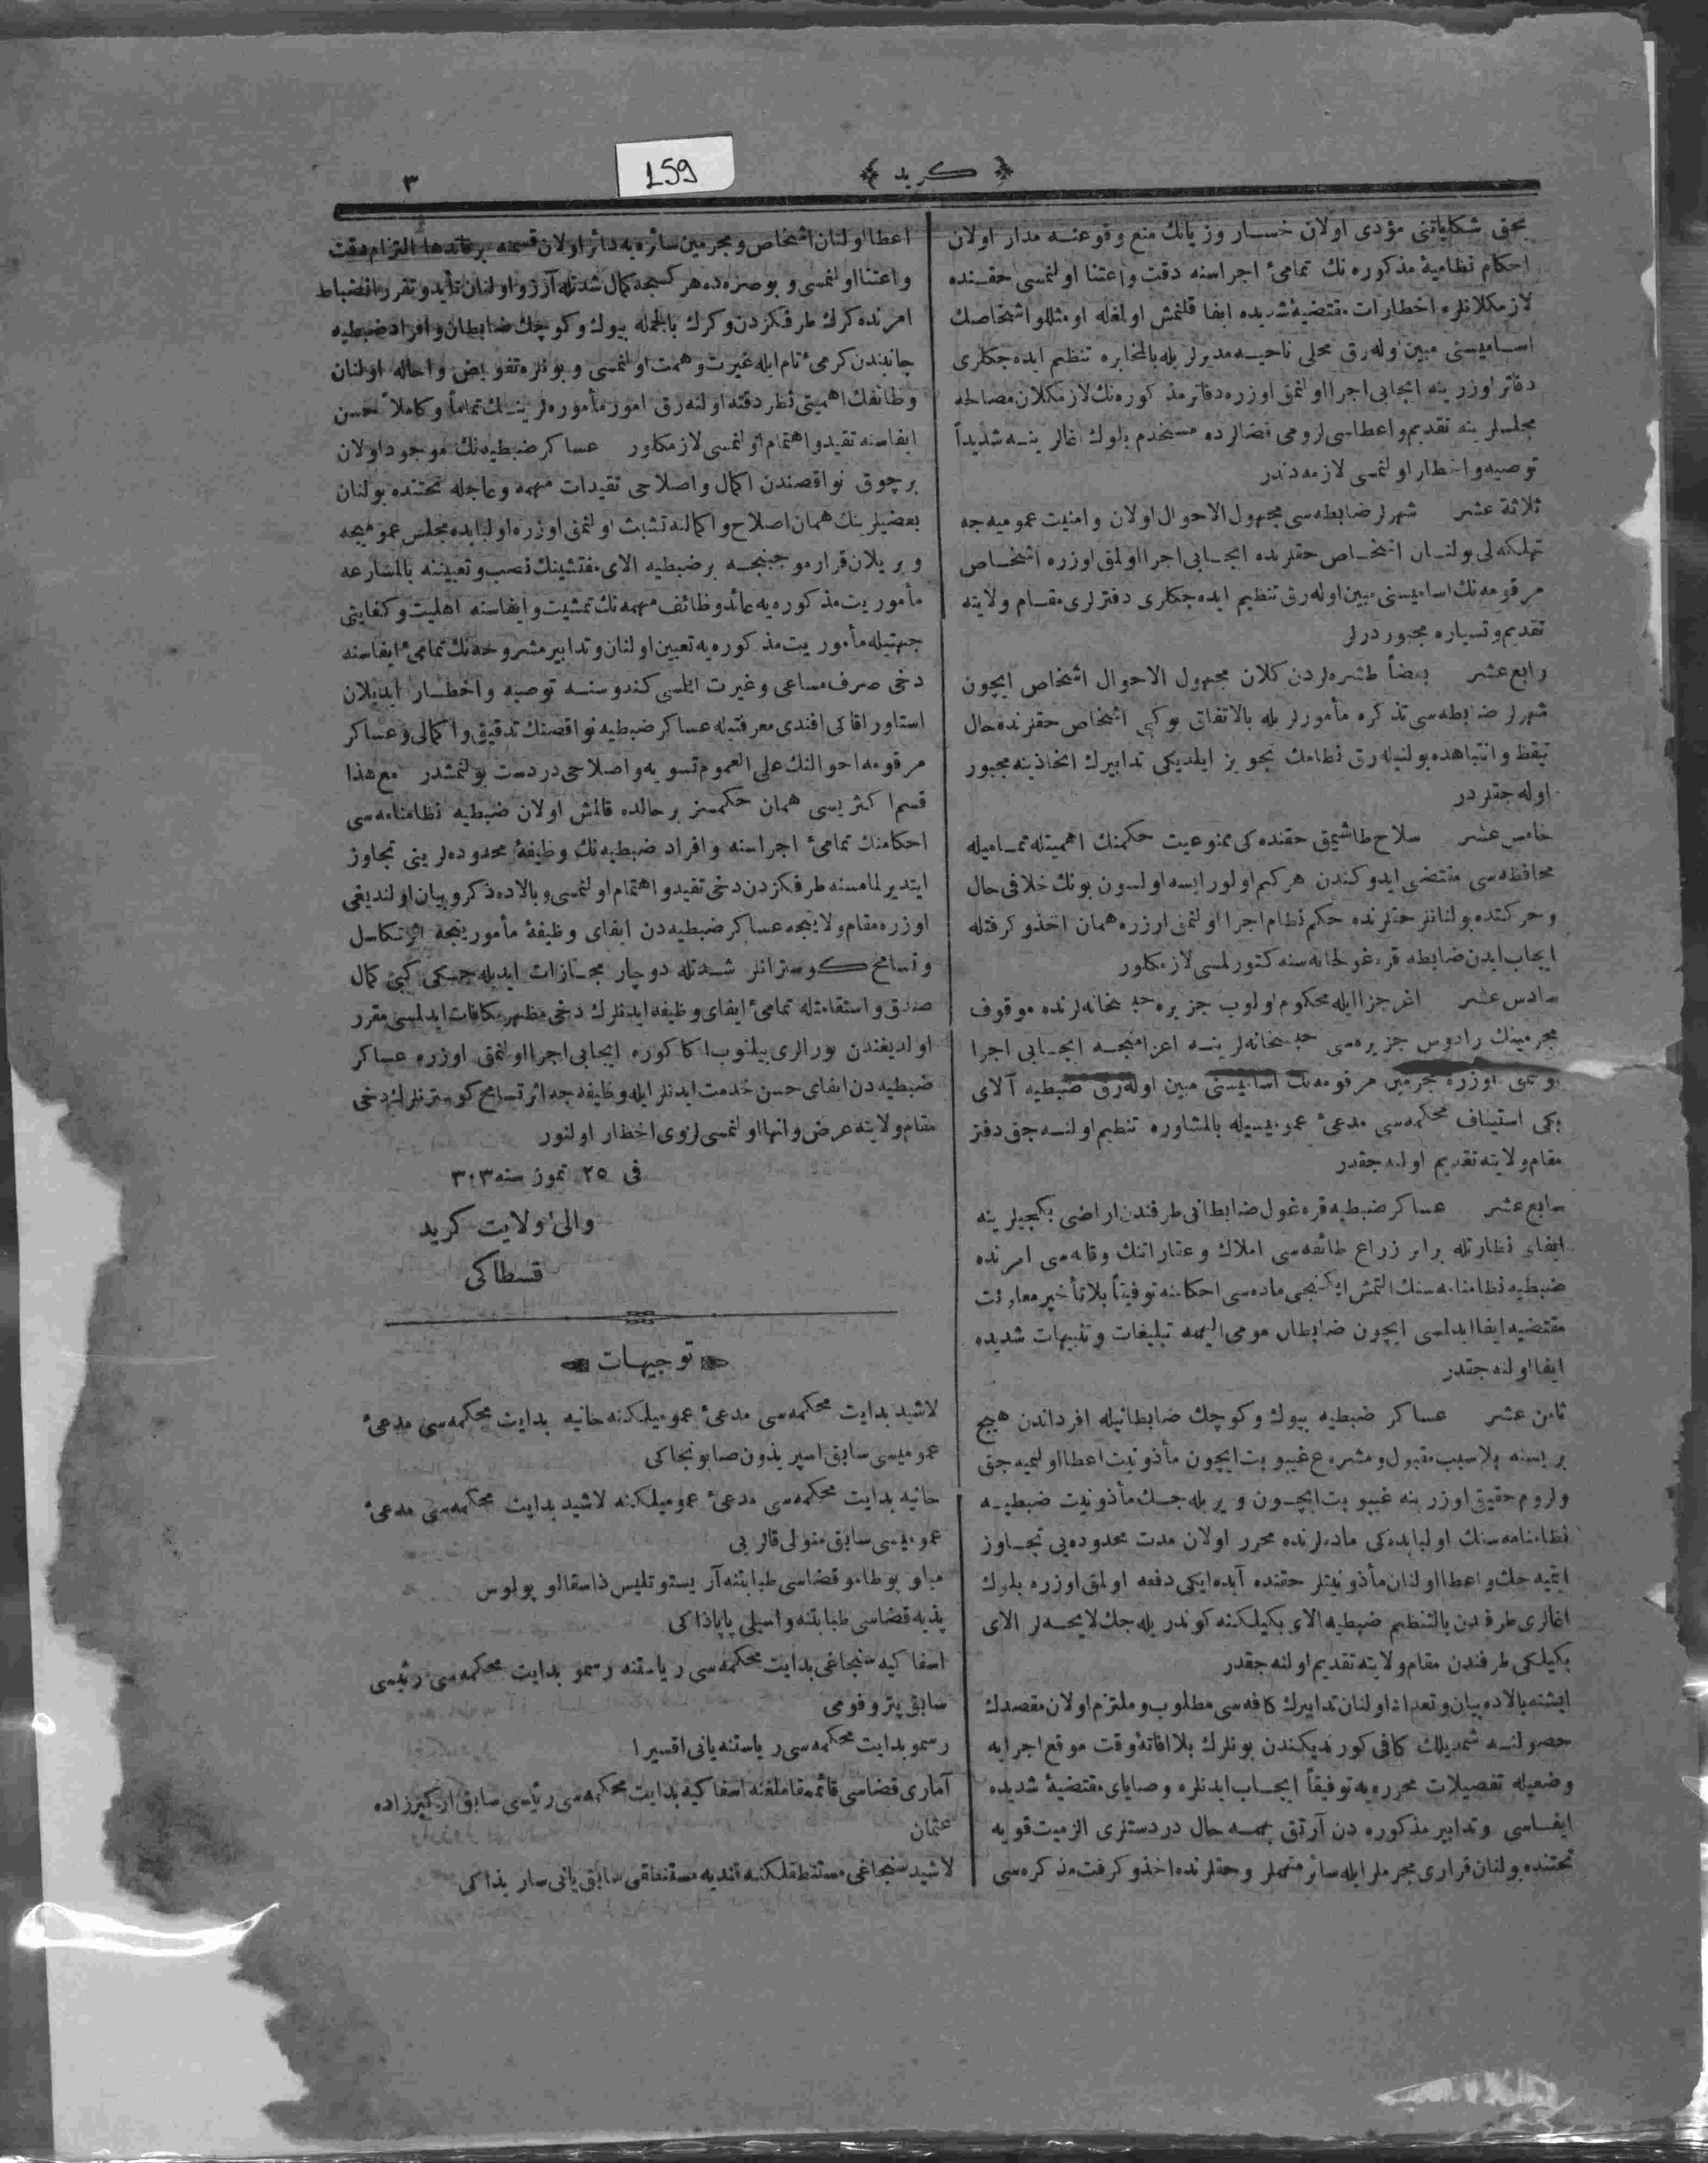 ﴾ كريد ﴿
٣
159
بحق شكاياتنى مؤدى اولان خسار وزيانك منع وقوعنه مدار اولان
احكام نظاميهٔ مذكوره نك تمامئ اجراسنه دقت واعتنا اولنمسى حقنده
لازمكلانلره اخطارات مقتضيهٔ شديده ايفا قلنمش اولغله اومثللو اشخاصك
اساميسنى مبين اوله رق محلى ناحيه مديرلر يله بالمخابره تنظيم ايده جكلرى
دفاتر اوزرينه ايجابى اجرا اولنمق اوزره دفاتر مذكوره نك لازمكلان مصالحه
مجلسلرينه تقديم واعطاسى لزومى قضالرده مستخدم بلوك اغالرينه شديداً
توصيه واخطار اولنمسى لازمه دندر
ثلاثة عشر شهرلر ضابطه سى مجهول الاحوال اولان وامنيت عموميه جه
تهلكه لى بولنان اشخاص حقلرنده ايجابى اجرا اولمق اوزره اشخاص
مرقومه نك اساميسنى مبين اوله رق تنظيم ايده جكلرى دفترلرى مقام ولايته
تقديم وتسياره مجبوردرلر
رابع عشر بعضاً طشره لردن كلان مجهول الاحوال اشخاص ايچون
شهرلر ضابطه سى تذكره مأمورلر يله بالاتفاق بوكبى اشخاص حقلرنده حال
تيقظ وانتباهده بولنيله رق نظامك تجويز ايلديكى تدابيرك اتخاذينه مجبور
اوله جقلردر
خامس عشر سلاح طاشيمق حقنده كى ممنوعيت حكمنك اهميتله تماميله
محافظه سى مقتضى ايدوكندن هركيم اولورايسه اولسون بونك خلافى حال
وحركتده بولنانلر حقلرنده حكم نظام اجرا اولنمق اوزره همان اخذوكرفتله
ايجاب ايدن ضابطه قره غولخانه سنه كتورلمسى لازمكلور
سادس عشر اغر جزا ايله محكوم اولوب جزيره حبسخانه لرنده موقوف
مجرمينك رادوس جزيره سى حبسخانه لرينه اعزامنجه ايجابى اجرا
اولنمق اوزره مجرمين مرقومه نك اساميسنى مبين اوله رق ضبطيه آلاى
بكى استيناف محكمه سى مدعئ عموميسيله بالمشاوره تنظيم اولنه جق دفتر
مقام ولايته تقديم اولنه جقدر
سابع عشر عساكر ضبطيه قره غول ضابطانى طرفندن اراضى بكجيلرينه
ايفاى نظارتله برابر زراع طائفه سى املاك وعقاراتنك وقايه سى امرنده
ضبطيه نظامنامه سنك التمش ايكنجى ماده سى احكامنه توفيقاً بلاتأخير معاونت
مقتضيه ايفا ايدلمسى ايچون ضابطان مومى اليهمه تبليغات وتنبيهات شديده
ايفا اولنه جقدر
ثامن عشر عساكر ضبطيه بيوك وكوچك ضابطانيله افرداندن هيچ
بريسنه بلاسبب مقبول ومشروع غيبوبت ايچون مأذونيت اعطا اولنميه جق
ولزوم حقيقى اوزرينه غيبوبت ايچون ويريله جك مأذونيت ضبطيه
نظامنامه سنك اولبابده كى ماده لرنده محرر اولان مدت محدوده يى تجاوز
ايتميه جك واعطا اولنان مأذونيتلر حقنده آيده ايكى دفعه اولمق اوزره بلوك
اغالرى طرفندن بالتنظيم ضبطيه الاى بكيلكنه كوندريله جك لايحه لر الاى
بكيلكى طرفندن مقام ولايته تقديم اولنه جقدر
ايشته بالاده بيان وتعداد اولنان تدابيرك كافه سى مطلوب وملتزم اولان مقصدك
حصولنه شمديلك كافى كورنديكندن بونلرك بلا افاتهٔ وقت موقع اجرايه
وضعيله تفصيلات محرره يه توفيقاً ايجاب ايدنلره وصاياى مقتضيهٔ شديده
ايفاسى وتدابير مذكوره دن آرتق بهمه حال دردستلرى الزميت قويه
تحتنده بولنان قرارى مجرملر ايله سائر متهملر وحقلرنده اخذوكرفت مذكره سى
اعطا اولنان اشخاص ومجرمين سائره يه دائر اولان قسمنه برقاتدها التزام دقت
واعتنا اولنمسى وبوصره ده هركسجه كمال شدتله آرزو اولنان تأييد وتقرر انضباط
امرنده كرك طرفكزدن وكرك بالجمله بيوك وكوچك ضابطان وافراد ضبطيه
جانبندن كرمئ تام ايله غيرت وهمت اولنمسى وبونلره تفويض واحاله اولنان
وظائفك اهميتى نظر دقته اولنه رق امور مأموره لرينك تماماً وكاملاً حسن
ايفاسنه تقيد واهتمام اولنمسى لازمكلور عساكر ضبطيه نك موجود اولان
برچوق نواقصندن اكمال واصلاحى تقيدات مهمه وعاجله تحتنده بولنان
بعضيلرينك همان اصلاح واكمالنه تشبث اولنمق اوزره اولبابده مجلس عموميجه
ويريلان قرار موجبنجه بر ضبطيه الاى مفتشينك نصب وتعييننه بالمسارعه
مأموريت مذكوره يه عائد وظائف مهمه نك تمشيت وايفاسنه اهليت وكفايتى
جهتيله مأموريت مذكوره يه تعيين اولنان وتدابير مشروحه نك تمامئ ايفاسنه
دخى صرف مساعى وغيرت ايلمسى كندوسنه توصيه واخطار ايديلان
استاوراقاكى افندى معرفتيله عساكر ضبطيه نواقصنك تدقيق واكمالى وعساكر
مرقومه احوالنك على العموم تسويه واصلاحى دردست بولنمشدر مع هذا
قسم اكثريسى همان حكمسز برحالده قالمش اولان ضبطيه نظامنامه سى
احكامنك تمامئ اجراسنه وافراد ضبطيه نك وظيفهٔ محدوده لرينى تجاوز
ايتديرلمامسنه طرفكزدن دخى تقيد واهتمام اولنمسى وبالاده ذكر وبيان اولنديغى
اوزره مقام ولايتجه عساكر ضبطيه دن ايفاى وظيفهٔ مأموريتجه اثر تكاسل
وتسامح كوسترانلر شدتله دوچار مجازات ايديله جكى كبى كمال
صدق واستقامتله تمامئ ايفاى وظيفه ايدنلرك دخى مظهر مكافات ايدلمسى مقرر
اولديغندن بورالرى بيلنوب اكا كوره ايجابى اجرا اولنمق اوزره عساكر
ضبطيه دن ايفاى حسن خدمت ايدنلر ايله وظيفه جه اثر تسامح كوسترنلرك دخى
مقام ولايته عرض وانها اولنمسى لزومى اخطار اولنور
فى ٢٥ تموز سنه ٣٠٣
والئ ولايت كريد
قسطاكى
توجيهات
لاشيد بدايت محكمه سى مدعئ عموميلكنه حانيه بدايت محكمه سى مدعئ
عموميسى سابق اسپريذون صابونجاكى
حانيه بدايت محكمه سى مدعئ عموميلكنه لاشيد بدايت محكمه سى مدعئ
عموميسى سابق منولى قالربى
ميلو پوطامو قضاسى طبابتنه آريستوتليس ذاسقالو پولوس
پذيه قضاسى طبابتنه واسيلى پاپاذاكى
اسفاكيه سنجاغى بدايت محكمه سى رياستنه رسمو بدايت محكمه سى رئيسى
سابق پترو فومى
رسمو بدايت محكمه سى رياستنه يانى اقسيرا
آمارى قضاسى قائمقاملغنه اسفاكيه بدايت محكمه سى رئيسى سابق اركيرزاده
عثمان
لاشيد سنجاغى مستنطقلكنه قنديه مستنطقى سابق يانى سار يذاكى